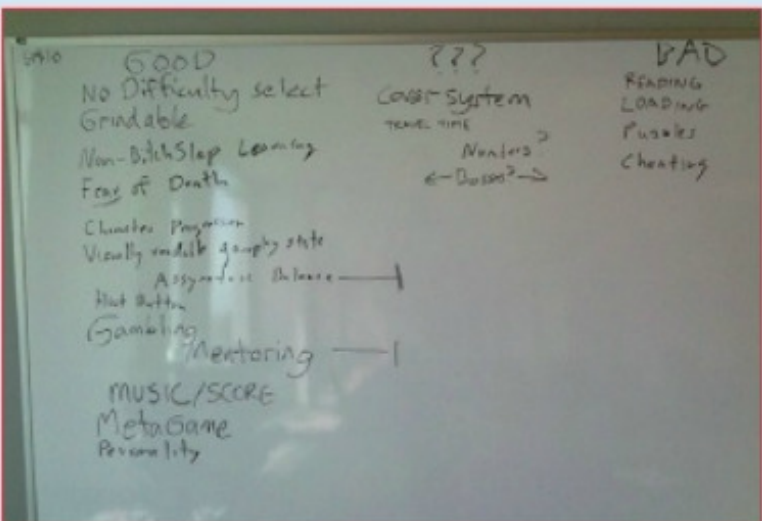 GOOD
No Difficulty select
Grindable
Non-BitchSlap Learning
Fear of Death
Character Progression
Visually readable gameplay state
Assymetric Balance
Hint Button
Gambling
Mentoring
MUSIC/SCORE
MetaGame
Personality
???
Cover System
TRAVEL TIME
Numbers?
Bosses?
BAD
READING
LOADING
Puzzles
Cheating